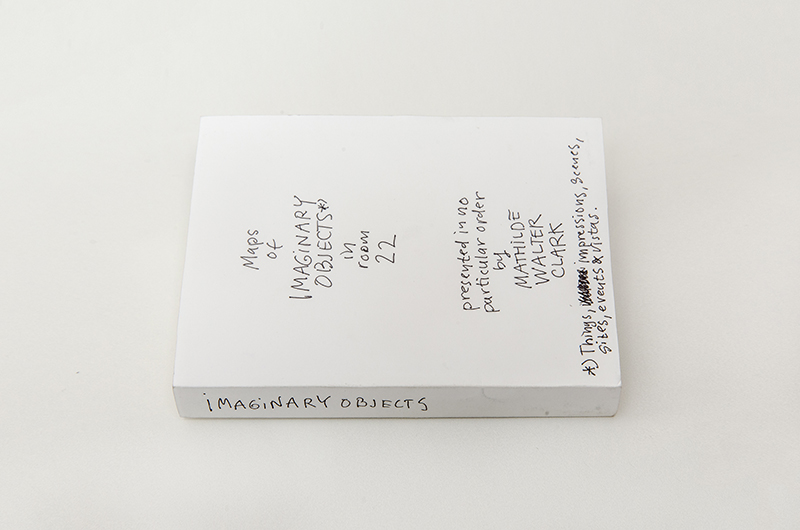 Maps
of
IMAGINARY
OBJECTS*)
in
room
22
presented in no
particular order
by
MATHILDE
WALTER
CLARK
*) Things, impressions, scenes,
sites, events & vistas.
IMAGINARY OBJECTS